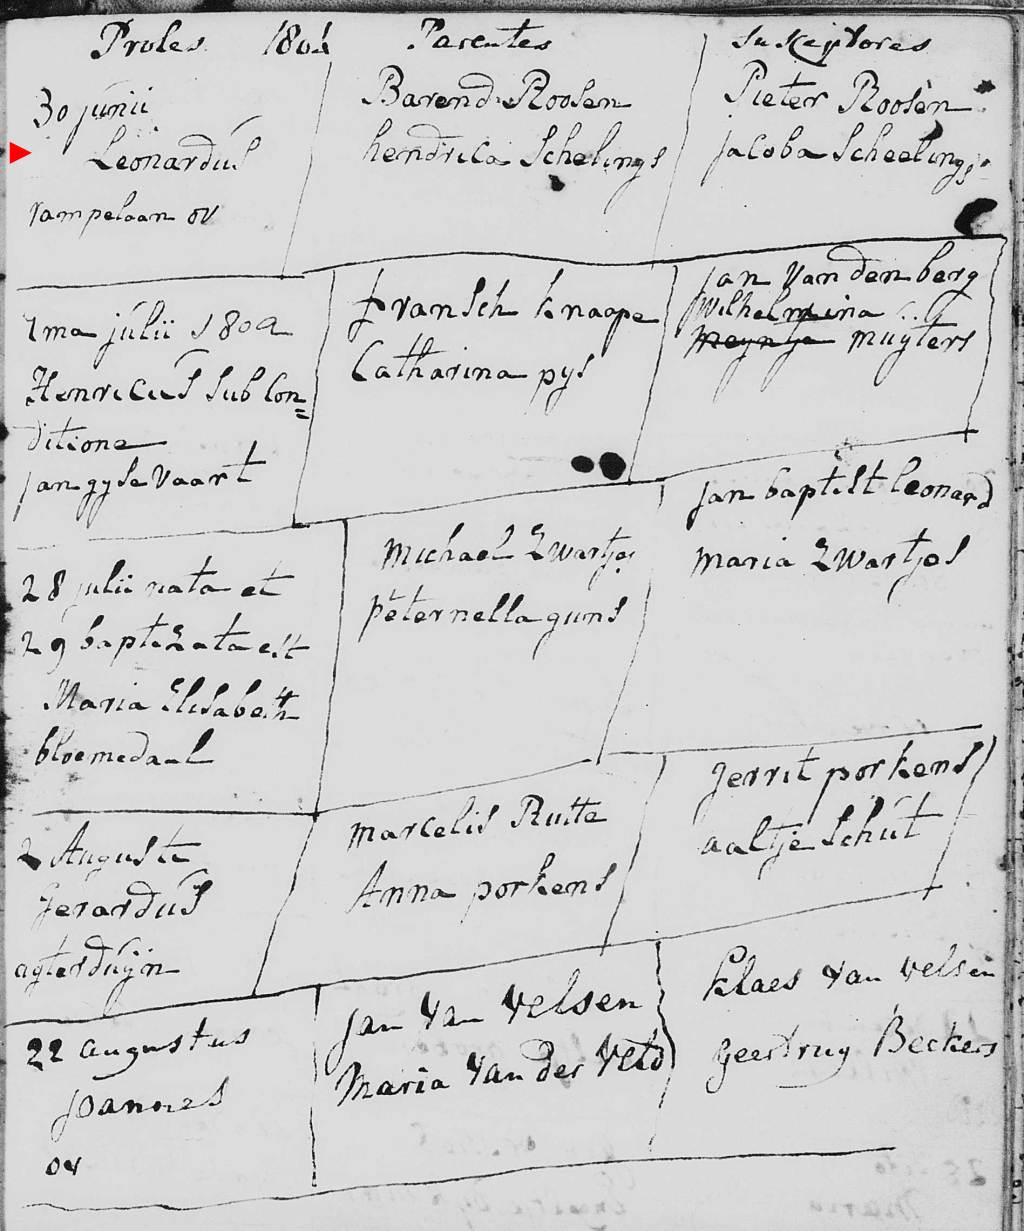 Proles 1801 Parentes Susceptores
30 junii
Leonardus
rampelaan ov
Barend Roosen
hendrica Schelings
Pieter Roosen
jacoba Scheelings
1ma julii 1801
Henricus sub con=
ditione
jan gyse vaart
fransch knaape
Catharina pys
jan van den berg
Wilhelmina
meyntje muyters
28 julii nata et
29 baptizata est
Maria Elisabeth
bloemedaal
Michael Zwartjes
peternella guns
jan baptist leonard
maria Zwartjes
2 Augusti
Gerardus
agterduijn
marcelis Rutte
Anna porkens
gerrit porkens
aaltje Schut
22 augustus
joannes
ov
jan van velsen
Maria van der Veld
klaes van velsen
geertruy Beckers